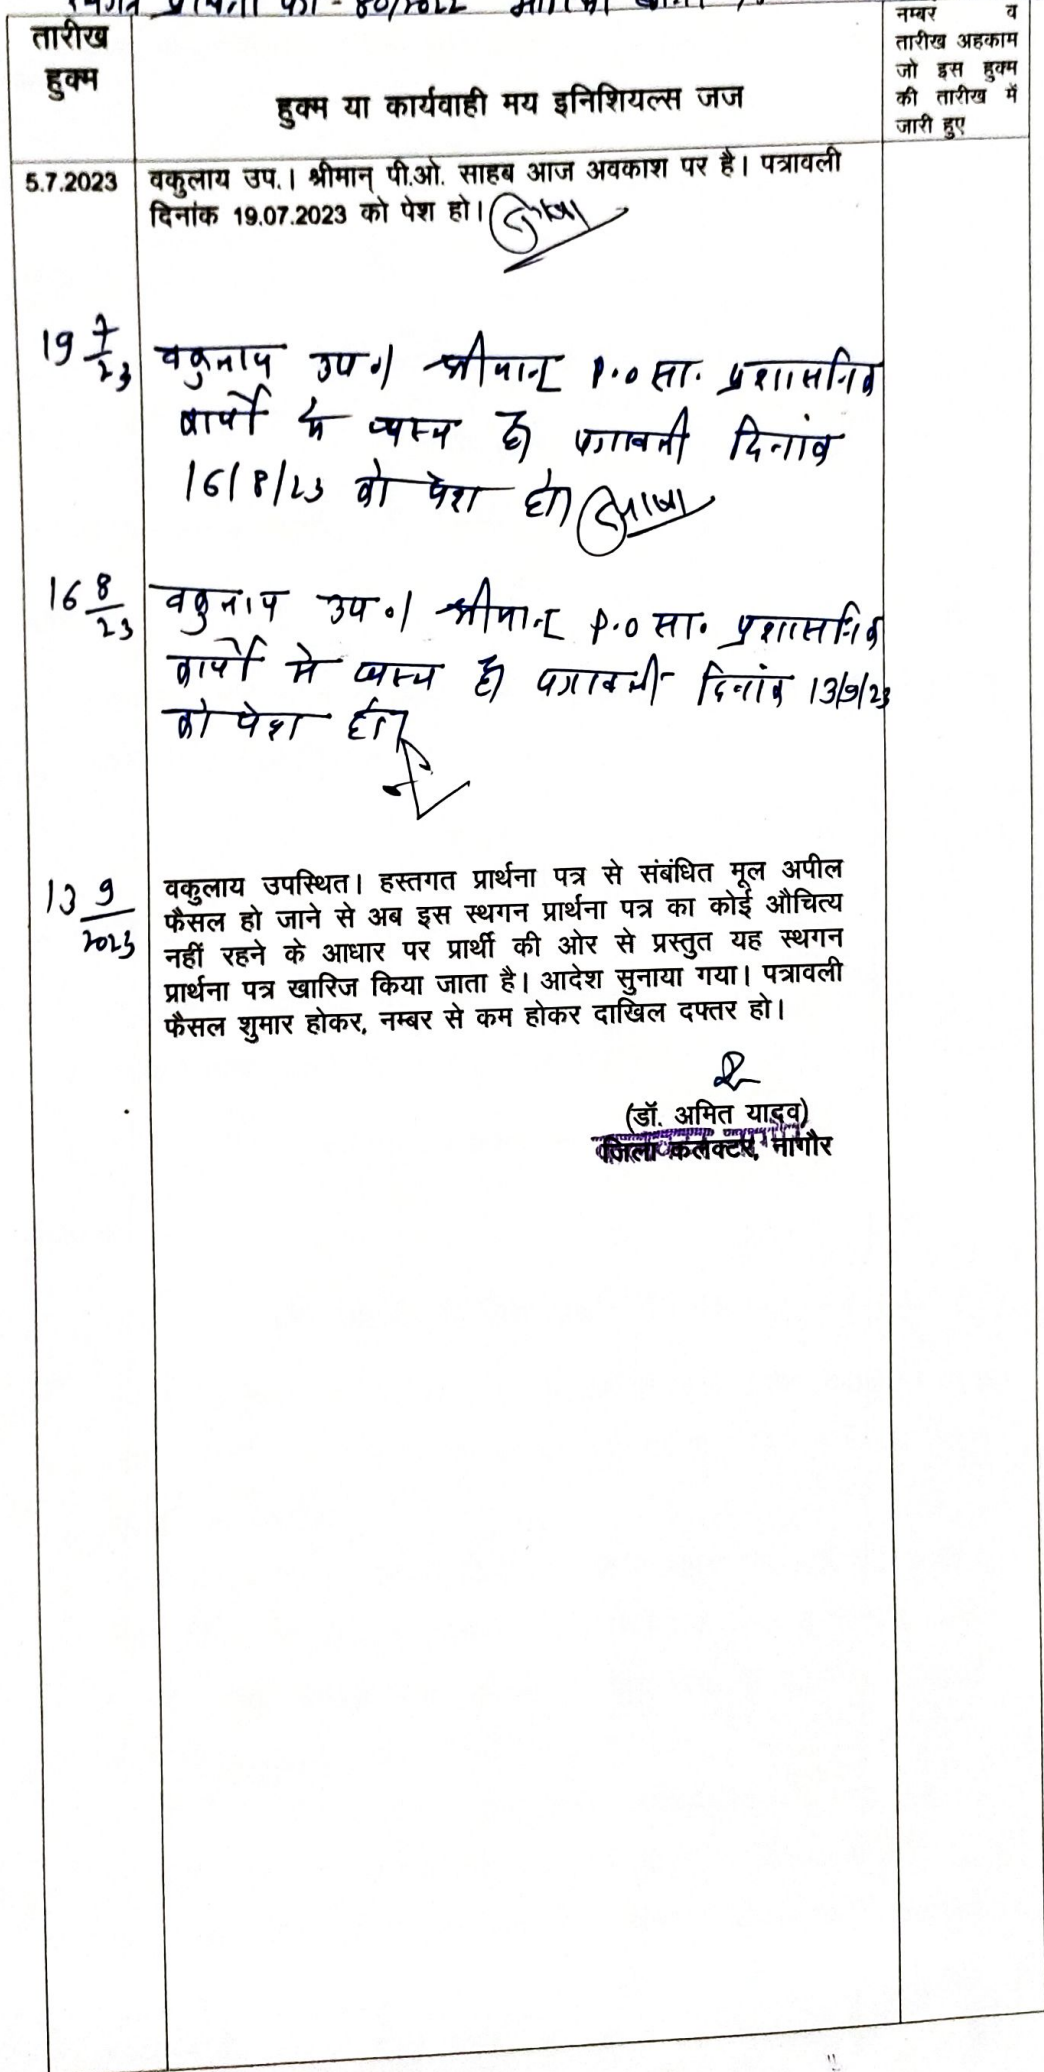 80/2022
तारीख
हुक्म
हुक्म या कार्यवाही मय इनिशियल्स जज
नम्बर व
तारीख अहकाम
जो इस हुक्म
की तारीख में
जारी हुए
5.7.2023 वकुलाय उप.। श्रीमान् पी.ओ. साहब आज अवकाश पर है। पत्रावली
दिनांक 19.07.2023 को पेश हो।
19 7/23 वकुलाय उप०। श्रीमान् P.O सा. प्रशासनिक
कार्यो मे व्यस्त है। पत्रावली दिनांक
16/8/23 को पेश हो।
16 8/23 वकुलाय उप०। श्रीमान् P.O सा. प्रशासनिक
कार्यो मे व्यस्त है। पत्रावली दिनांक 13/9/23
को पेश हो।
13 9/2023 वकुलाय उपस्थित। हस्तगत प्रार्थना पत्र से संबंधित मूल अपील
फैसल हो जाने से अब इस स्थगन प्रार्थना पत्र का कोई औचित्य
नहीं रहने के आधार पर प्रार्थी की ओर से प्रस्तुत यह स्थगन
प्रार्थना पत्र खारिज किया जाता है। आदेश सुनाया गया। पत्रावली
फैसल शुमार होकर, नम्बर से कम होकर दाखिल दफ्तर हो।
(डॉ. अमित यादव)
जिला कलक्टर, नागौर